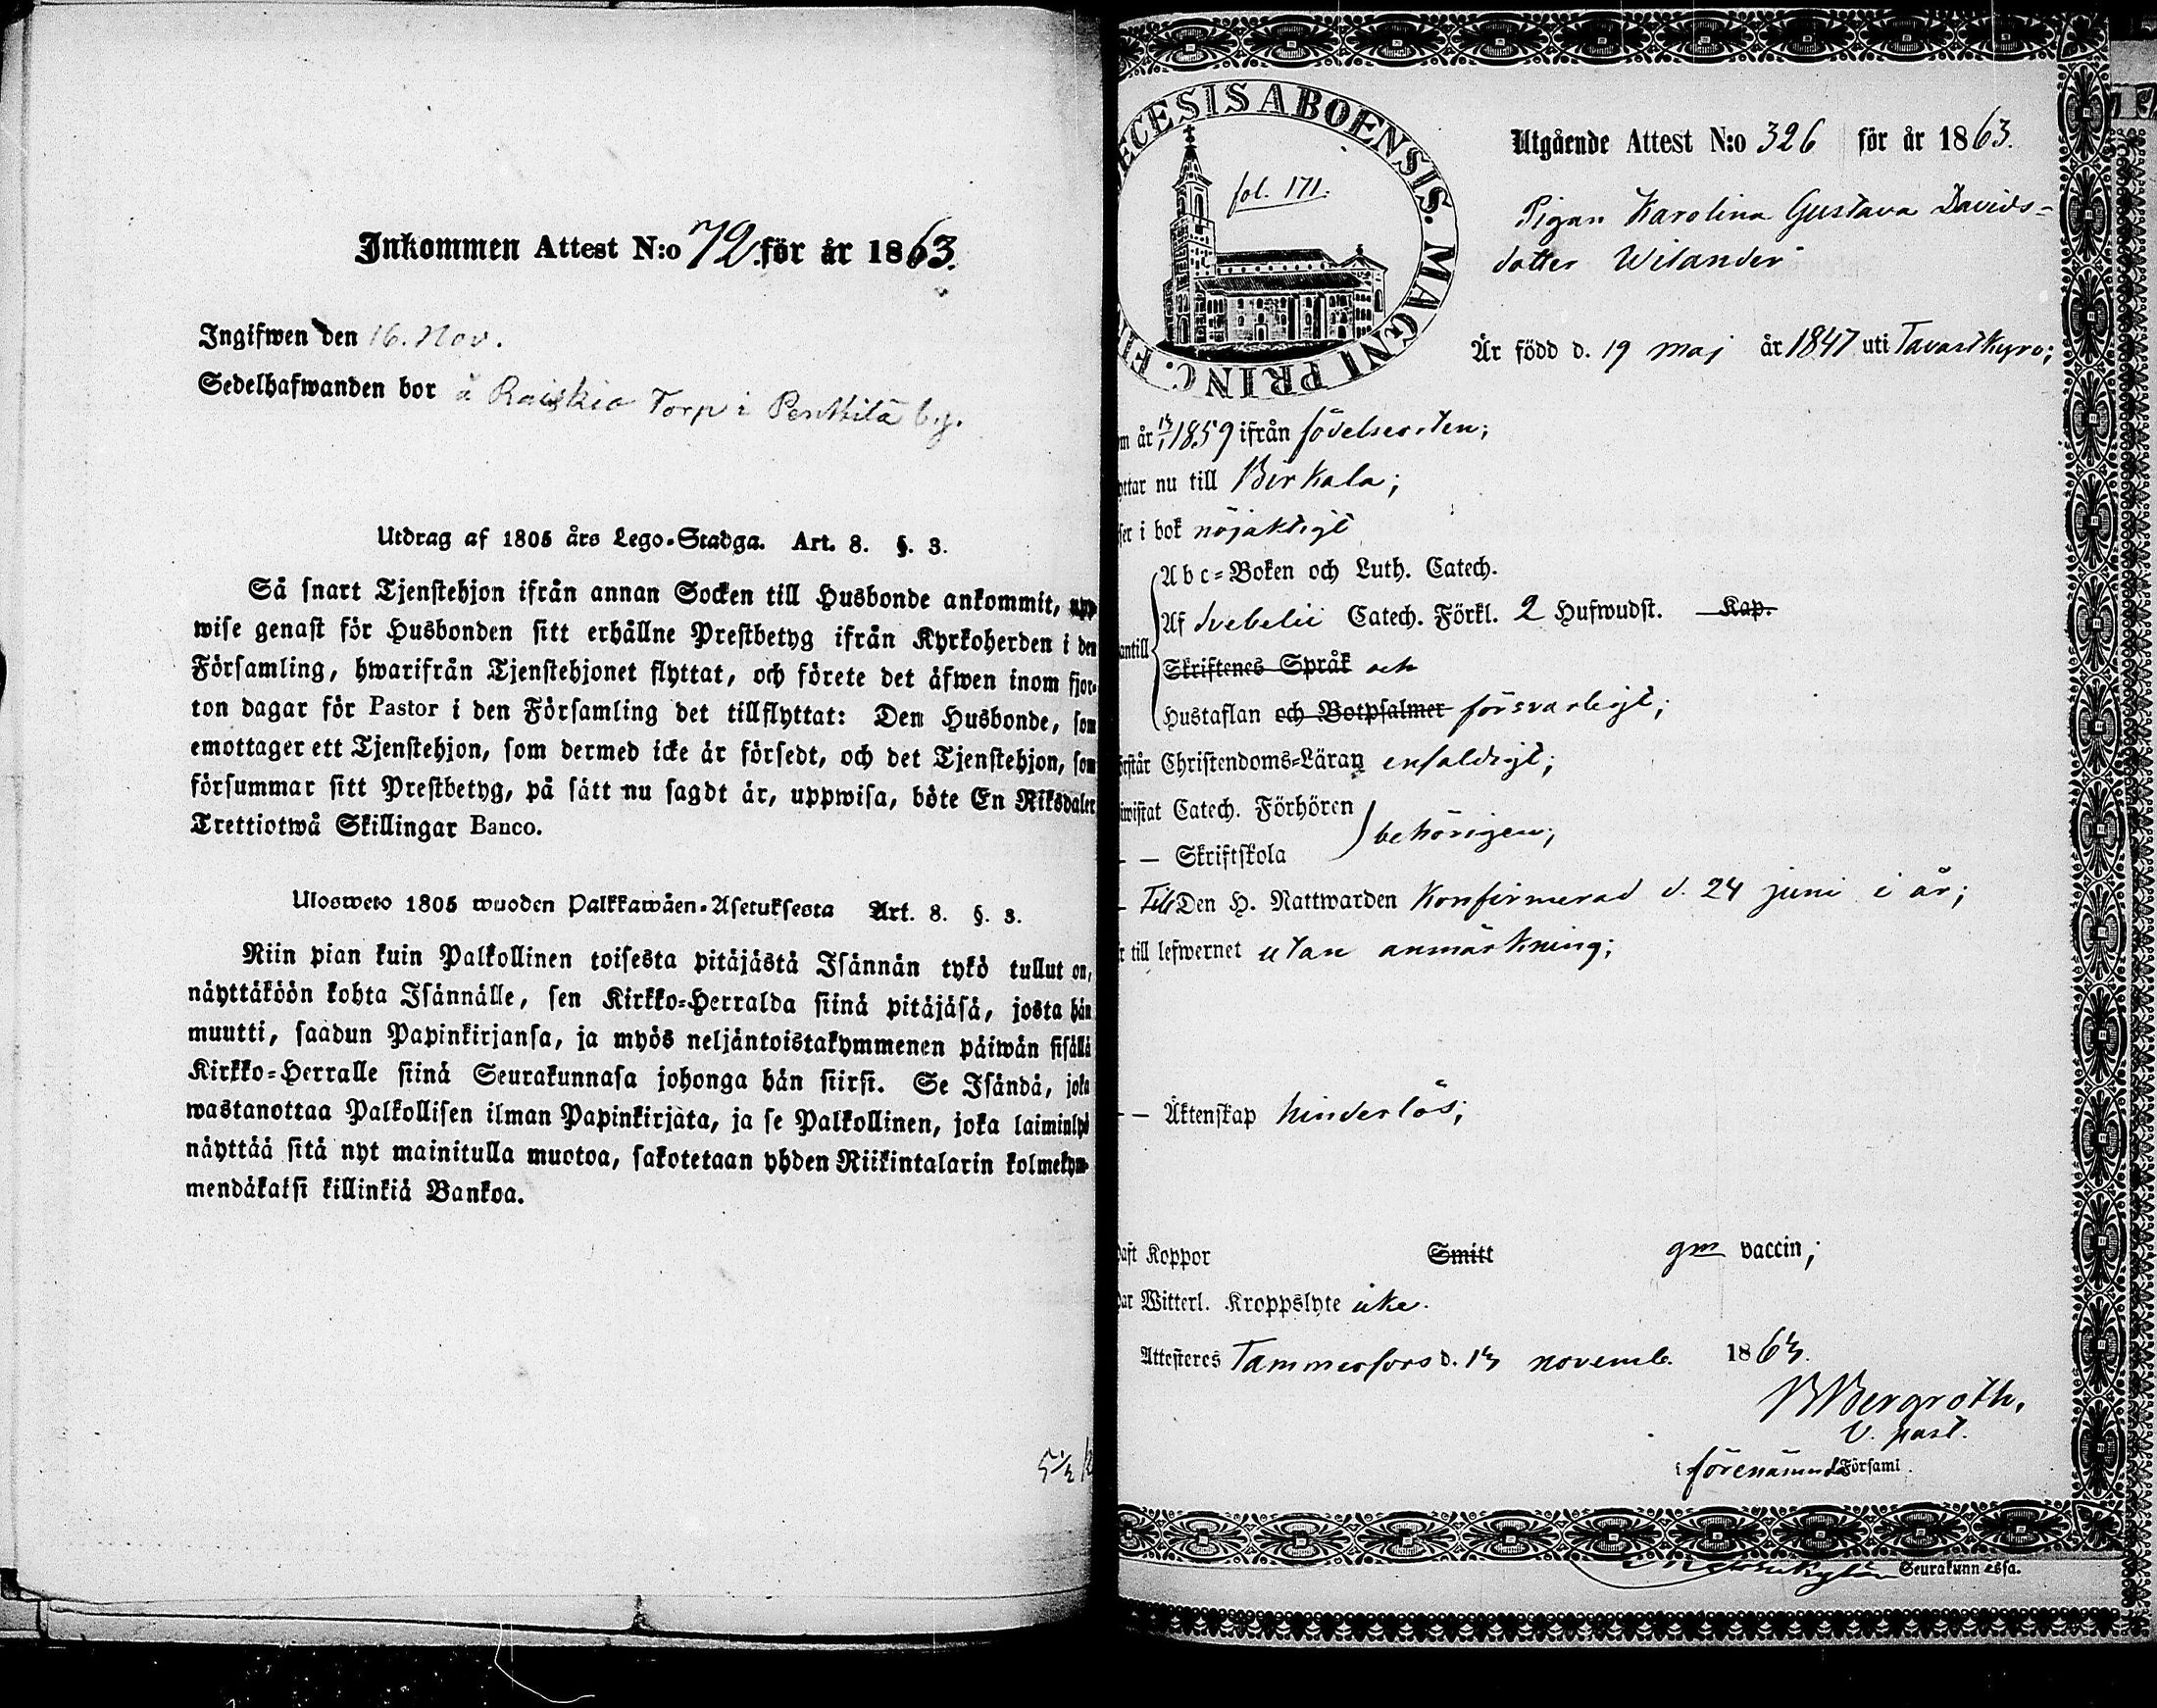 Inkommen Attest N:o 72. för år 1863.
Ingifwen den 16. Nov.
Sedelhafwanden bor å Raiskio Torp i Penttilä by.
Utdrag af 1805 års Lego-Stadga. Art. 8. §. 3.
Så snart Tjenstehjon ifrån annan Socken till Husbonde ankommit, upp
wise genast för Husbonden sitt erhållne Prestbetyg ifrån Kyrkoherden i den
Församling, hwarifrån Tjenstehjonet flyttat, och förete det äfwen inom fjor-
ton dagar för Pastor i den Församling det tillflyttat: Den Husbonde, som
emottager ett Tjenstehjon, som dermed icke är försedt, och det Tjenstehjon, som
försummar sitt Prestbetyg, på sätt nu sagdt är, uppwisa, böte En Riksdaler
Trettiotwå Skillingar Banco.
Ulosweto 1805 wuoden Palkkawäen-Asetuksesta Art. 8. §. 3.
Niin pian kuin Palkollinen toisesta pitäjästä Isännän tykö tullut on,
näyttäköön kohta Isännälle, sen Kirkko-Herralda siinä pitäjäsä, josta hän
muutti, saadun Papinkirjansa, ja myös neljäntoistakymmenen päiwän sisällä
Kirkko-Herralle siinä Seurakunnasa johonga hän siirsi. Se Isändä, joka
wastanottaa Palkollisen ilman Papinkirjata, ja se Palkollinen, joka laiminlyö
näyttää sitä nyt mainitulla muotoa, sakotetaan yhden Riikintalarin kolmekym-
mendäkaksi killinkiä Bankoa.
5½
ECESIS ABOENSIS. MAGNI PRINC. FI
fol. 171.
Utgående Attest N:o 326 för år 1863.
Pigan Karolina Gustava Davids-
dotter Wilander
Är född d. 19 maj år 1847 uti Tavastkyro;
m år 13/1 1859 ifrån födelseorten;
yttar nu till Birkala;
ser i bok nöjaktigt
Abc-Boken och Luth. Catech.
Af Svebelii Catech. Förkl. 2 Hufwudst. Kap.
antill
Skriftenes Språk och
Hustaflan och Botpsalmer försvarligt;
örstår Christendoms-Läran enfaldigt;
iwistat Catech. Förhören
behörigen;
- — Skriftskola
- Till Den H. Nattwarden Konfirmerad d. 24 juni i år;
r till lefwernet utan anmärkning;
- — Äktenskap hinderlös;
aft Koppor Smitt gm vaccin;
ar Witterl. Kroppslyte icke.
Attesteres Tammerfors d. 13 novemb. 1863.
Bergroth.
V. past.
i förenämnda Församl.
Seurakunnassa.